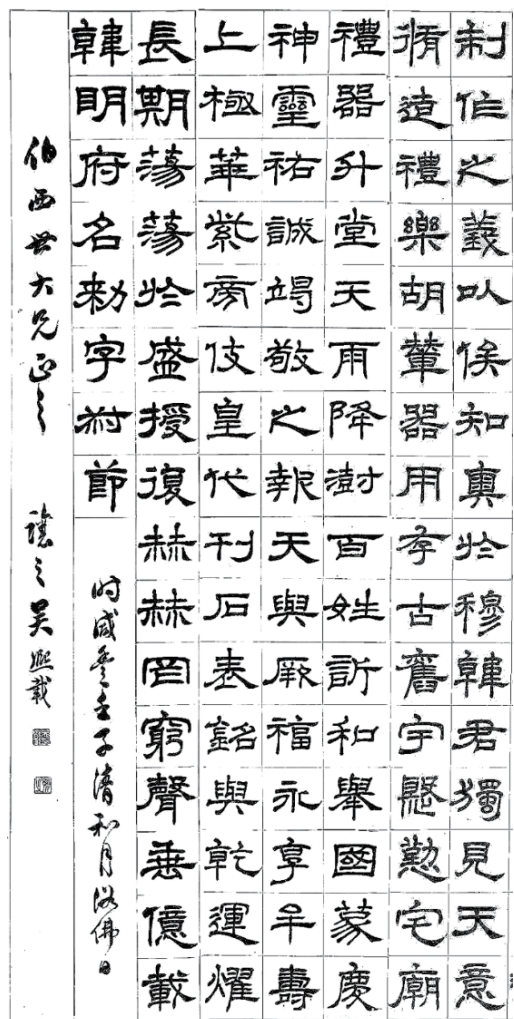 制作之義以俟知奧於穆韓君獨見天意
脩造禮樂胡輦器用存古舊宇慇懃宅廟
禮器升堂天雨降澍百姓訢和舉國蒙慶
神靈祐誠竭敬之報天與厥福永享牟壽
上極華紫旁伎皇代刊石表銘與乾運耀
長期蕩蕩於盛授復赫赫罔窮聲垂億載
韓明府名勑字叔節
时咸豐壬子清和月浴佛日
伯西世大兄正之 讓之吳熙載